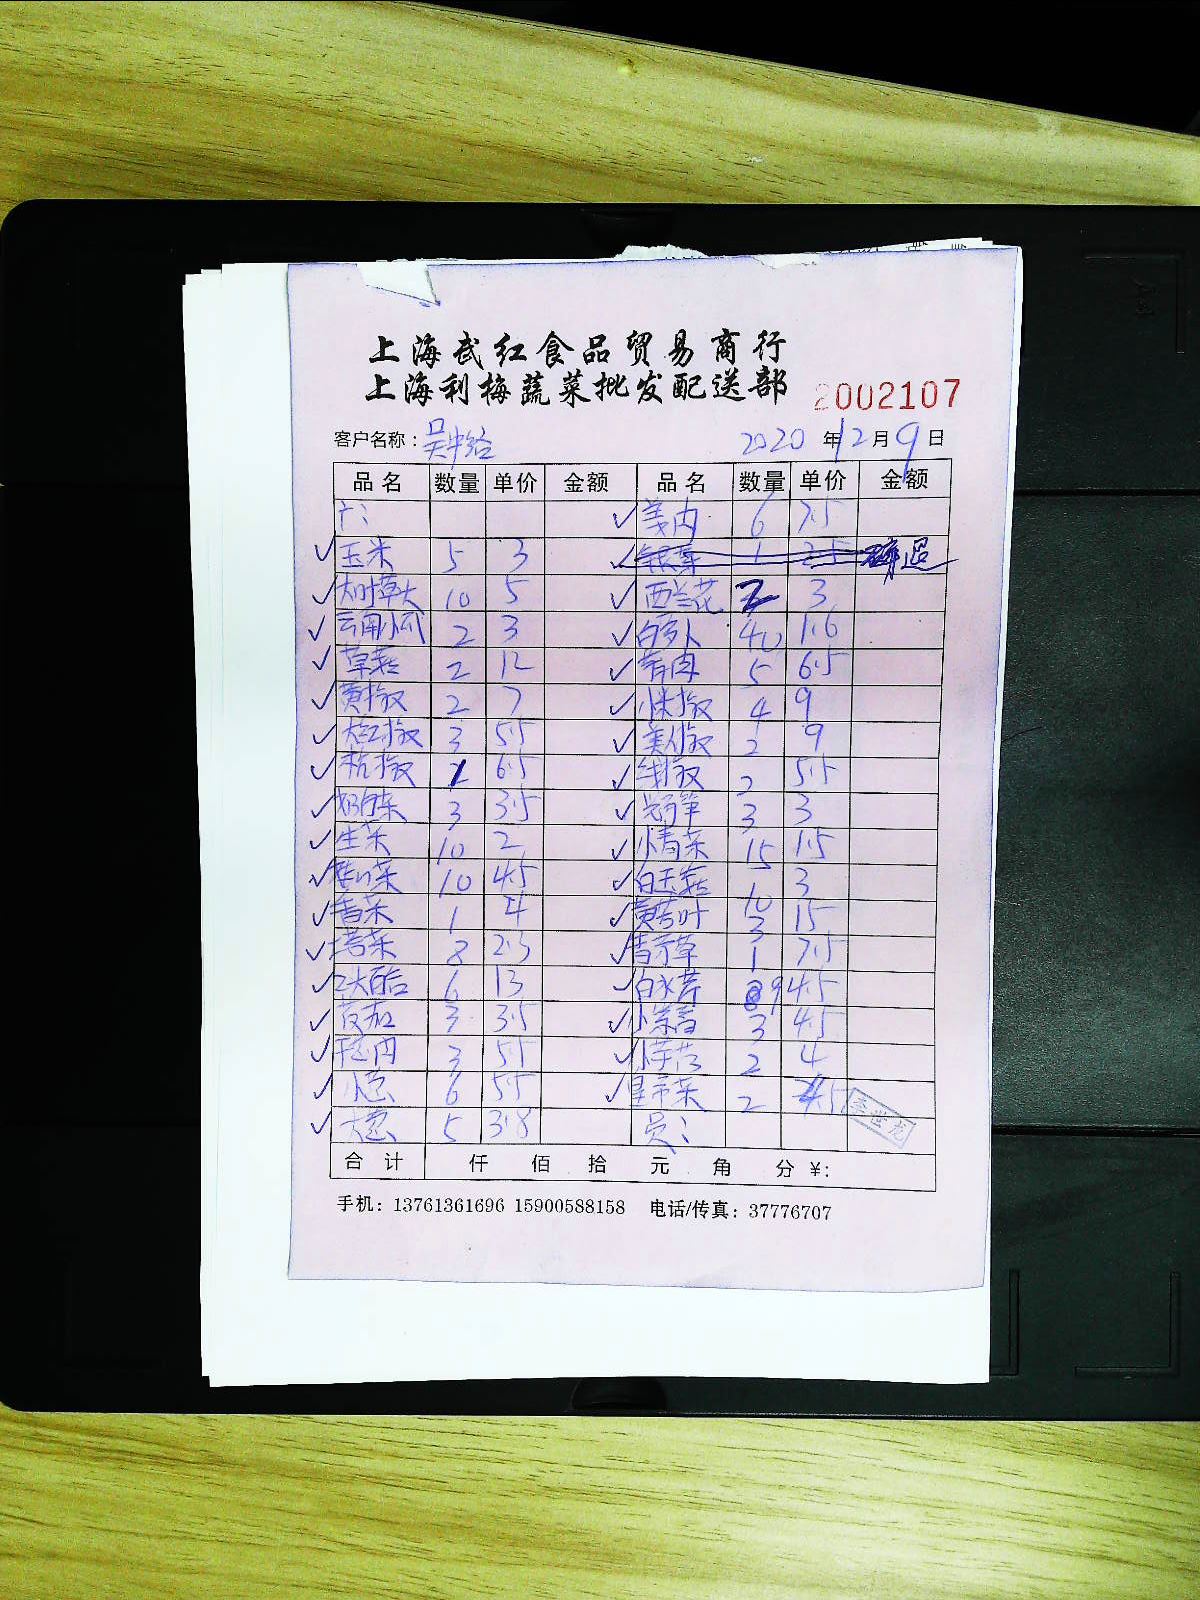 上海武红食品贸易商行
上海利梅蔬菜批发配送部
2002107
客户名称：吴中路 2020 年 12 月 9 日
品名 数量 单价 金额 品名 数量 单价 金额
姜肉 6 7.5
玉米 5 3 银芽 1 2.5 退
10 5 西兰花 2 3
云南小瓜 2 3 白萝卜 40 1.6
草菇 2 12 青肉 5 6.5
黄椒 2 7 小米椒 4 9
大红椒 3 5.5 美人椒 2 9
杭椒 2 6.5 线椒 2 5.5
奶白菜 3 3.5 莴笋 3 3
生菜 10 2 小青菜 15 1.5
菜 10 4.5 白玉菇 10 3
香菜 1 4 黄芽叶 3 15
塔菜 8 2.3 香芹草 1 7.5
6 13 白水芹 9 4.5
茄 3 3.5 小茴香 3 4.5
干葱肉 3 5.5 小芋艿 2 4
小葱 6 5.5 菜 2 4.5
大葱 5 3.8 员：
李世龙
合计 仟 佰 拾 元 角 分 ¥:
手机：13761361696 15900588158 电话/传真：37776707